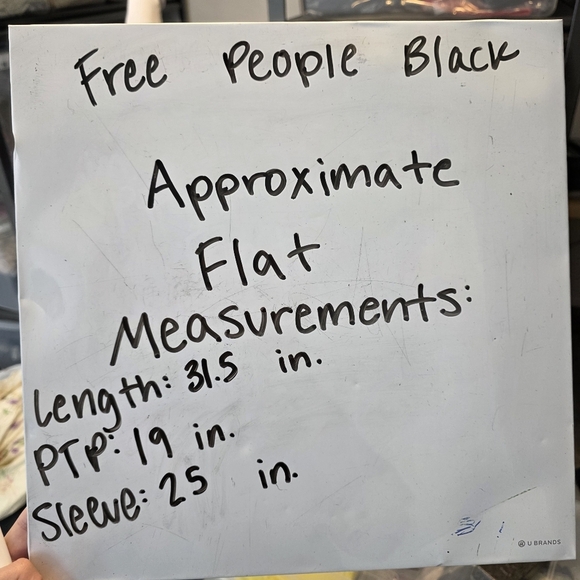 Free People Black
Approximate
Flat
Measurements:
Length: 31.5 in.
PTP: 19 in.
Sleeve: 25 in.
U BRANDS